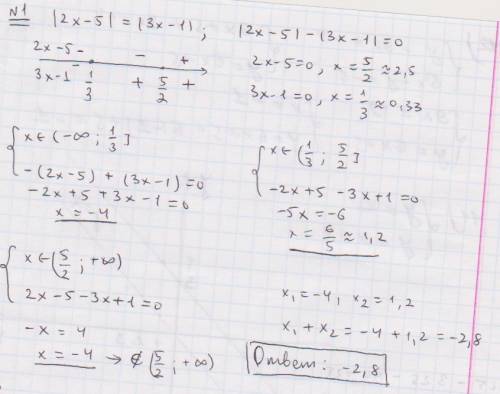 N1 |2x-5| = |3x-1| ; |2x-5|-|3x-1|=0
2x-5 - - +
3x-1 - 1/3 + 5/2 +
2x-5=0, x=5/2≈2,5
3x-1=0, x=1/3≈0,33
{ x∈(-∞; 1/3]
-(2x-5)+(3x-1)=0
-2x+5+3x-1=0
x=-4
{ x∈(1/3; 5/2]
-2x+5-3x+1=0
-5x=-6
x=6/5≈1,2
{ x∈(5/2; +∞)
2x-5-3x+1=0
-x=4
x=-4 → ∉(5/2; +∞)
x₁=-4, x₂=1,2
x₁+x₂=-4+1,2=-2,8
Ответ: -2,8